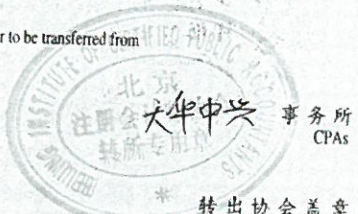 r to be transferred from
BEIJING INSTITUTE OF CERTIFIED PUBLIC ACCOUNTANTS
北京
注册会
大华中兴 事务所
CPAs
转所专用章
转出协会盖章